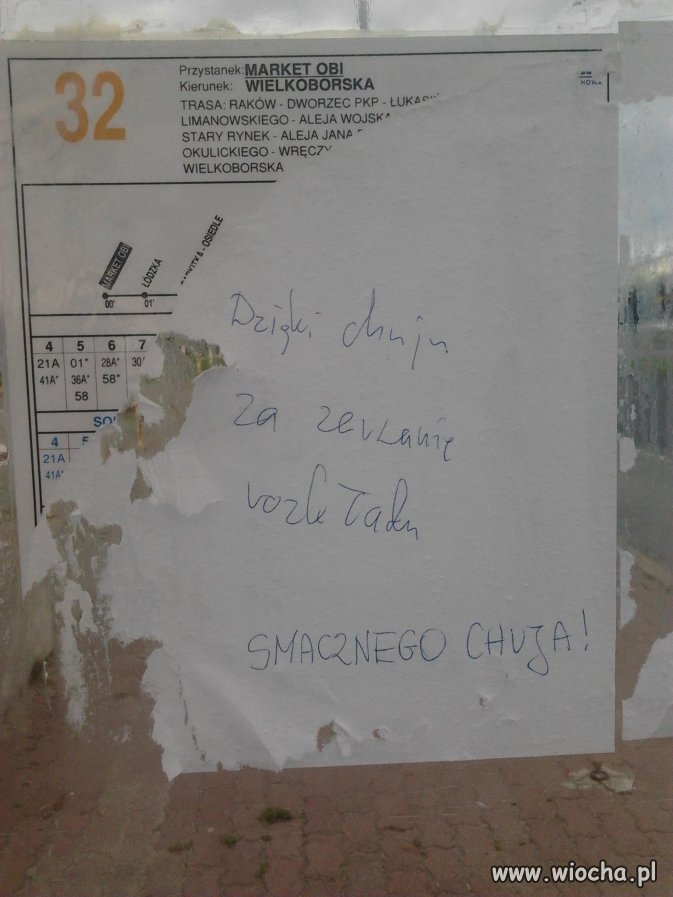 32
Przystanek: MARKET OBI
Kierunek: WIELKOBORSKA
TRASA: RAKÓW - DWORZEC PKP - ŁUKASI
LIMANOWSKIEGO - ALEJA WOJSKA
STARY RYNEK - ALEJA JANA
OKULICKIEGO - WRĘCZY
WIELKOBORSKA
MARKET OBI
ŁÓDZKA
OSIEDLE
00' 01'
4 5 6 7
21A 01* 28A* 30
41A* 36A* 58*
58
SO
4 5
21A
41A*
Dzięki chuju
za zerwanie
rozkładu
SMACZNEGO CHUJA!
www.wiocha.pl